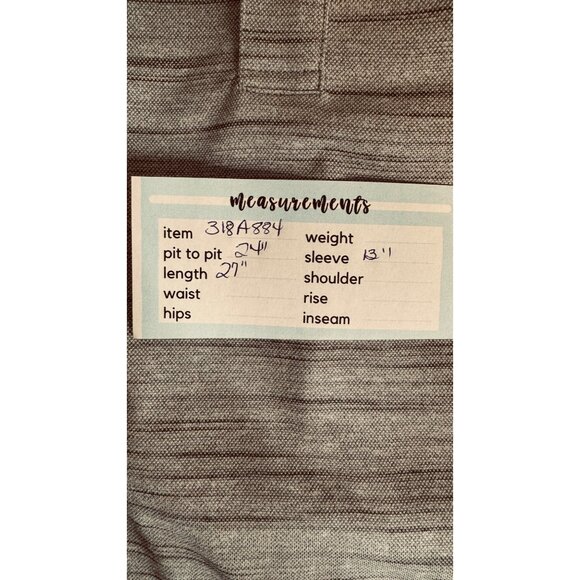 measurements
item 318A884
pit to pit 24"
length 27"
waist
hips
weight
sleeve 13"
shoulder
rise
inseam